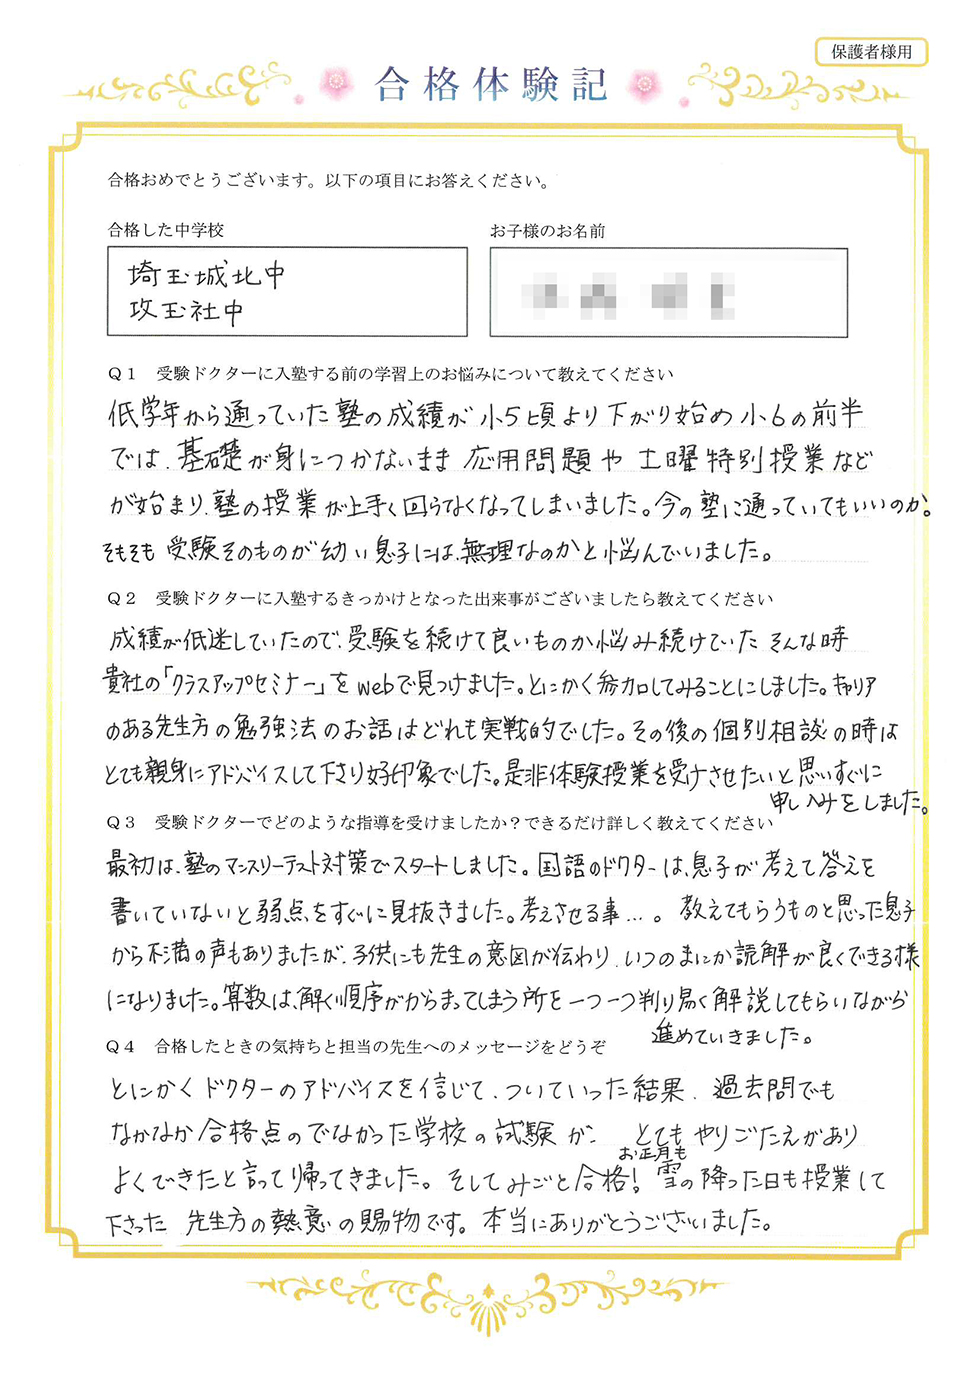 保護者様用
合格体験記
合格おめでとうございます。以下の項目にお答えください。
合格した中学校
お子様のお名前
埼玉城北中
攻玉社中
Q1 受験ドクターに入塾する前の学習上のお悩みについて教えてください
低学年から通っていた塾の成績が小5頃より下がり始め小6の前半
では、基礎が身につかないまま応用問題や土曜特別授業など
が始まり、塾の授業が上手く回らなくなってしまいました。今の塾に通っていてもいいのか。
そもそも受験そのものが幼い息子には、無理なのかと悩んでいました。
Q2 受験ドクターに入塾するきっかけとなった出来事がございましたら教えてください
成績が低迷していたので、受験を続けて良いものか悩み続けていたそんな時
貴社の「クラスアップセミナー」をwebで見つけました。とにかく参加してみることにしました。キャリア
のある先生方の勉強法のお話はどれも実戦的でした。その後の個別相談の時は
とても親身にアドバイスして下さり好印象でした。是非体験授業を受けさせたいと思いすぐに
申し込みをしました。
Q3 受験ドクターでどのような指導を受けましたか？できるだけ詳しく教えてください
最初は、塾のマンスリーテスト対策でスタートしました。国語のドクターは、息子が考えて答えを
書いていないと弱点をすぐに見抜きました。考えさせる事…。教えてもらうものと思った息子
から不満の声もありましたが、子供にも先生の意図が伝わり、いつのまにか読解が良くできる様
になりました。算数は、解く順序がからまってしまう所を一つ一つ判り易く解説してもらいながら
進めていきました。
Q4 合格したときの気持ちと担当の先生へのメッセージをどうぞ
とにかくドクターのアドバイスを信じて、ついていった結果、過去問でも
なかなか合格点のでなかった学校の試験が、とてもやりごたえがあり
よくできたと言って帰ってきました。そしてみごと合格！お正月も雪の降った日も授業して
下さった先生方の熱意の賜物です。本当にありがとうございました。